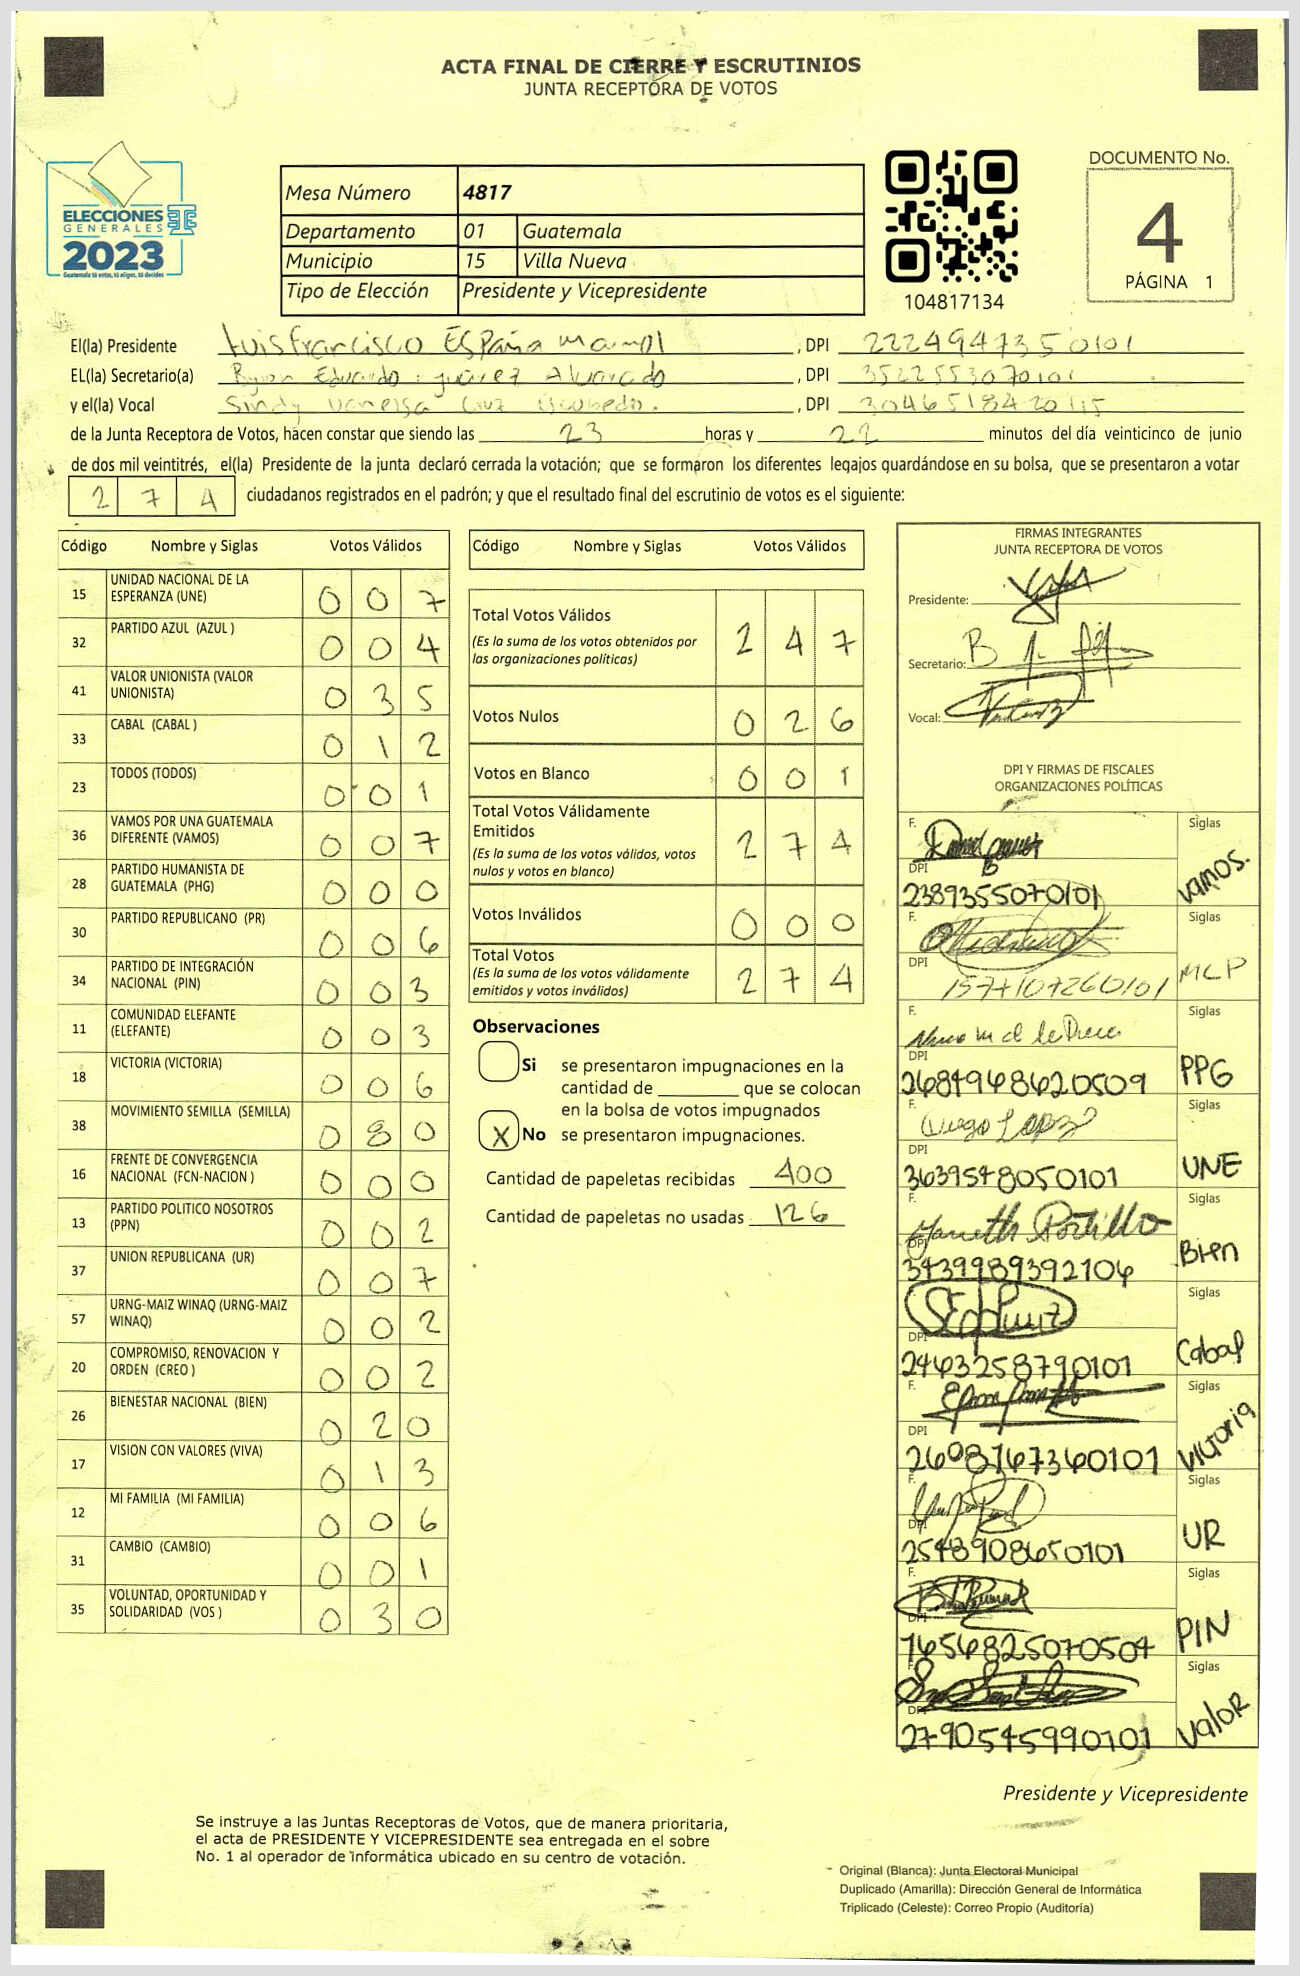 ACTA FINAL DE CIERRE Y ESCRUTINIOS
JUNTA RECEPTORA DE VOTOS
ELECCIONES
GENERALES
2023
Guatemala tú eres, tú eliges, tú decides
Mesa Número 4817
Departamento 01 Guatemala
Municipio 15 Villa Nueva
Tipo de Elección Presidente y Vicepresidente
104817134
DOCUMENTO No.
4
PÁGINA 1
El(la) Presidente Luis francisco España , DPI 2224947350101
EL(la) Secretario(a) Byron Eduardo Juarez Alvarado , DPI 3522553070101
y el(la) Vocal Sindy Vanessa Cruz , DPI 3046518420115
de la Junta Receptora de Votos, hacen constar que siendo las 23 horas y 22 minutos del día veinticinco de junio
de dos mil veintitrés, el(la) Presidente de la junta declaró cerrada la votación; que se formaron los diferentes legajos guardándose en su bolsa, que se presentaron a votar
274 ciudadanos registrados en el padrón; y que el resultado final del escrutinio de votos es el siguiente:
Código Nombre y Siglas Votos Válidos
15 UNIDAD NACIONAL DE LA ESPERANZA (UNE) 0 0 7
32 PARTIDO AZUL (AZUL ) 0 0 4
41 VALOR UNIONISTA (VALOR UNIONISTA) 0 3 5
33 CABAL (CABAL ) 0 1 2
23 TODOS (TODOS) 0 0 1
36 VAMOS POR UNA GUATEMALA DIFERENTE (VAMOS) 0 0 7
28 PARTIDO HUMANISTA DE GUATEMALA (PHG) 0 0 0
30 PARTIDO REPUBLICANO (PR) 0 0 6
34 PARTIDO DE INTEGRACIÓN NACIONAL (PIN) 0 0 3
11 COMUNIDAD ELEFANTE (ELEFANTE) 0 0 3
18 VICTORIA (VICTORIA) 0 0 6
38 MOVIMIENTO SEMILLA (SEMILLA) 0 8 0
16 FRENTE DE CONVERGENCIA NACIONAL (FCN-NACION ) 0 0 0
13 PARTIDO POLITICO NOSOTROS (PPN) 0 0 2
37 UNION REPUBLICANA (UR) 0 0 7
57 URNG-MAIZ WINAQ (URNG-MAIZ WINAQ) 0 0 2
20 COMPROMISO, RENOVACION Y ORDEN (CREO ) 0 0 2
26 BIENESTAR NACIONAL (BIEN) 0 2 0
17 VISION CON VALORES (VIVA) 0 1 3
12 MI FAMILIA (MI FAMILIA) 0 0 6
31 CAMBIO (CAMBIO) 0 0 1
35 VOLUNTAD, OPORTUNIDAD Y SOLIDARIDAD (VOS ) 0 3 0
Código Nombre y Siglas Votos Válidos
Total Votos Válidos 2 4 7
(Es la suma de los votos obtenidos por
las organizaciones políticas)
Votos Nulos 0 2 6
Votos en Blanco 0 0 1
Total Votos Válidamente
Emitidos 2 7 4
(Es la suma de los votos válidos, votos
nulos y votos en blanco)
Votos Inválidos 0 0 0
Total Votos 2 7 4
(Es la suma de los votos válidamente
emitidos y votos inválidos)
Observaciones
Si se presentaron impugnaciones en la
cantidad de ________ que se colocan
en la bolsa de votos impugnados
X No se presentaron impugnaciones.
Cantidad de papeletas recibidas 400
Cantidad de papeletas no usadas 126
FIRMAS INTEGRANTES
JUNTA RECEPTORA DE VOTOS
Presidente:
Secretario:
Vocal:
DPI Y FIRMAS DE FISCALES
ORGANIZACIONES POLÍTICAS
F. Siglas
DPI 2389355070101 vamos.
F. Siglas
DPI 1574107260101 MLP
F. Siglas
DPI 2684948620509 PPG
F. Diego Lopez Siglas
DPI 3639548050101 UNE
F. Portillo Siglas
DPI 3439989392106 Bien
F. Siglas
DPI 2463258790101 Cabal
F. Siglas
DPI 2608767360101 Victoria
F. Siglas
DPI 2548908650101 UR
F. Siglas
DPI 1656825070504 PIN
F. Siglas
DPI 2790545990101 Valor
Presidente y Vicepresidente
Se instruye a las Juntas Receptoras de Votos, que de manera prioritaria,
el acta de PRESIDENTE Y VICEPRESIDENTE sea entregada en el sobre
No. 1 al operador de informática ubicado en su centro de votación.
Original (Blanca): Junta Electoral Municipal
Duplicado (Amarilla): Dirección General de Informática
Triplicado (Celeste): Correo Propio (Auditoría)